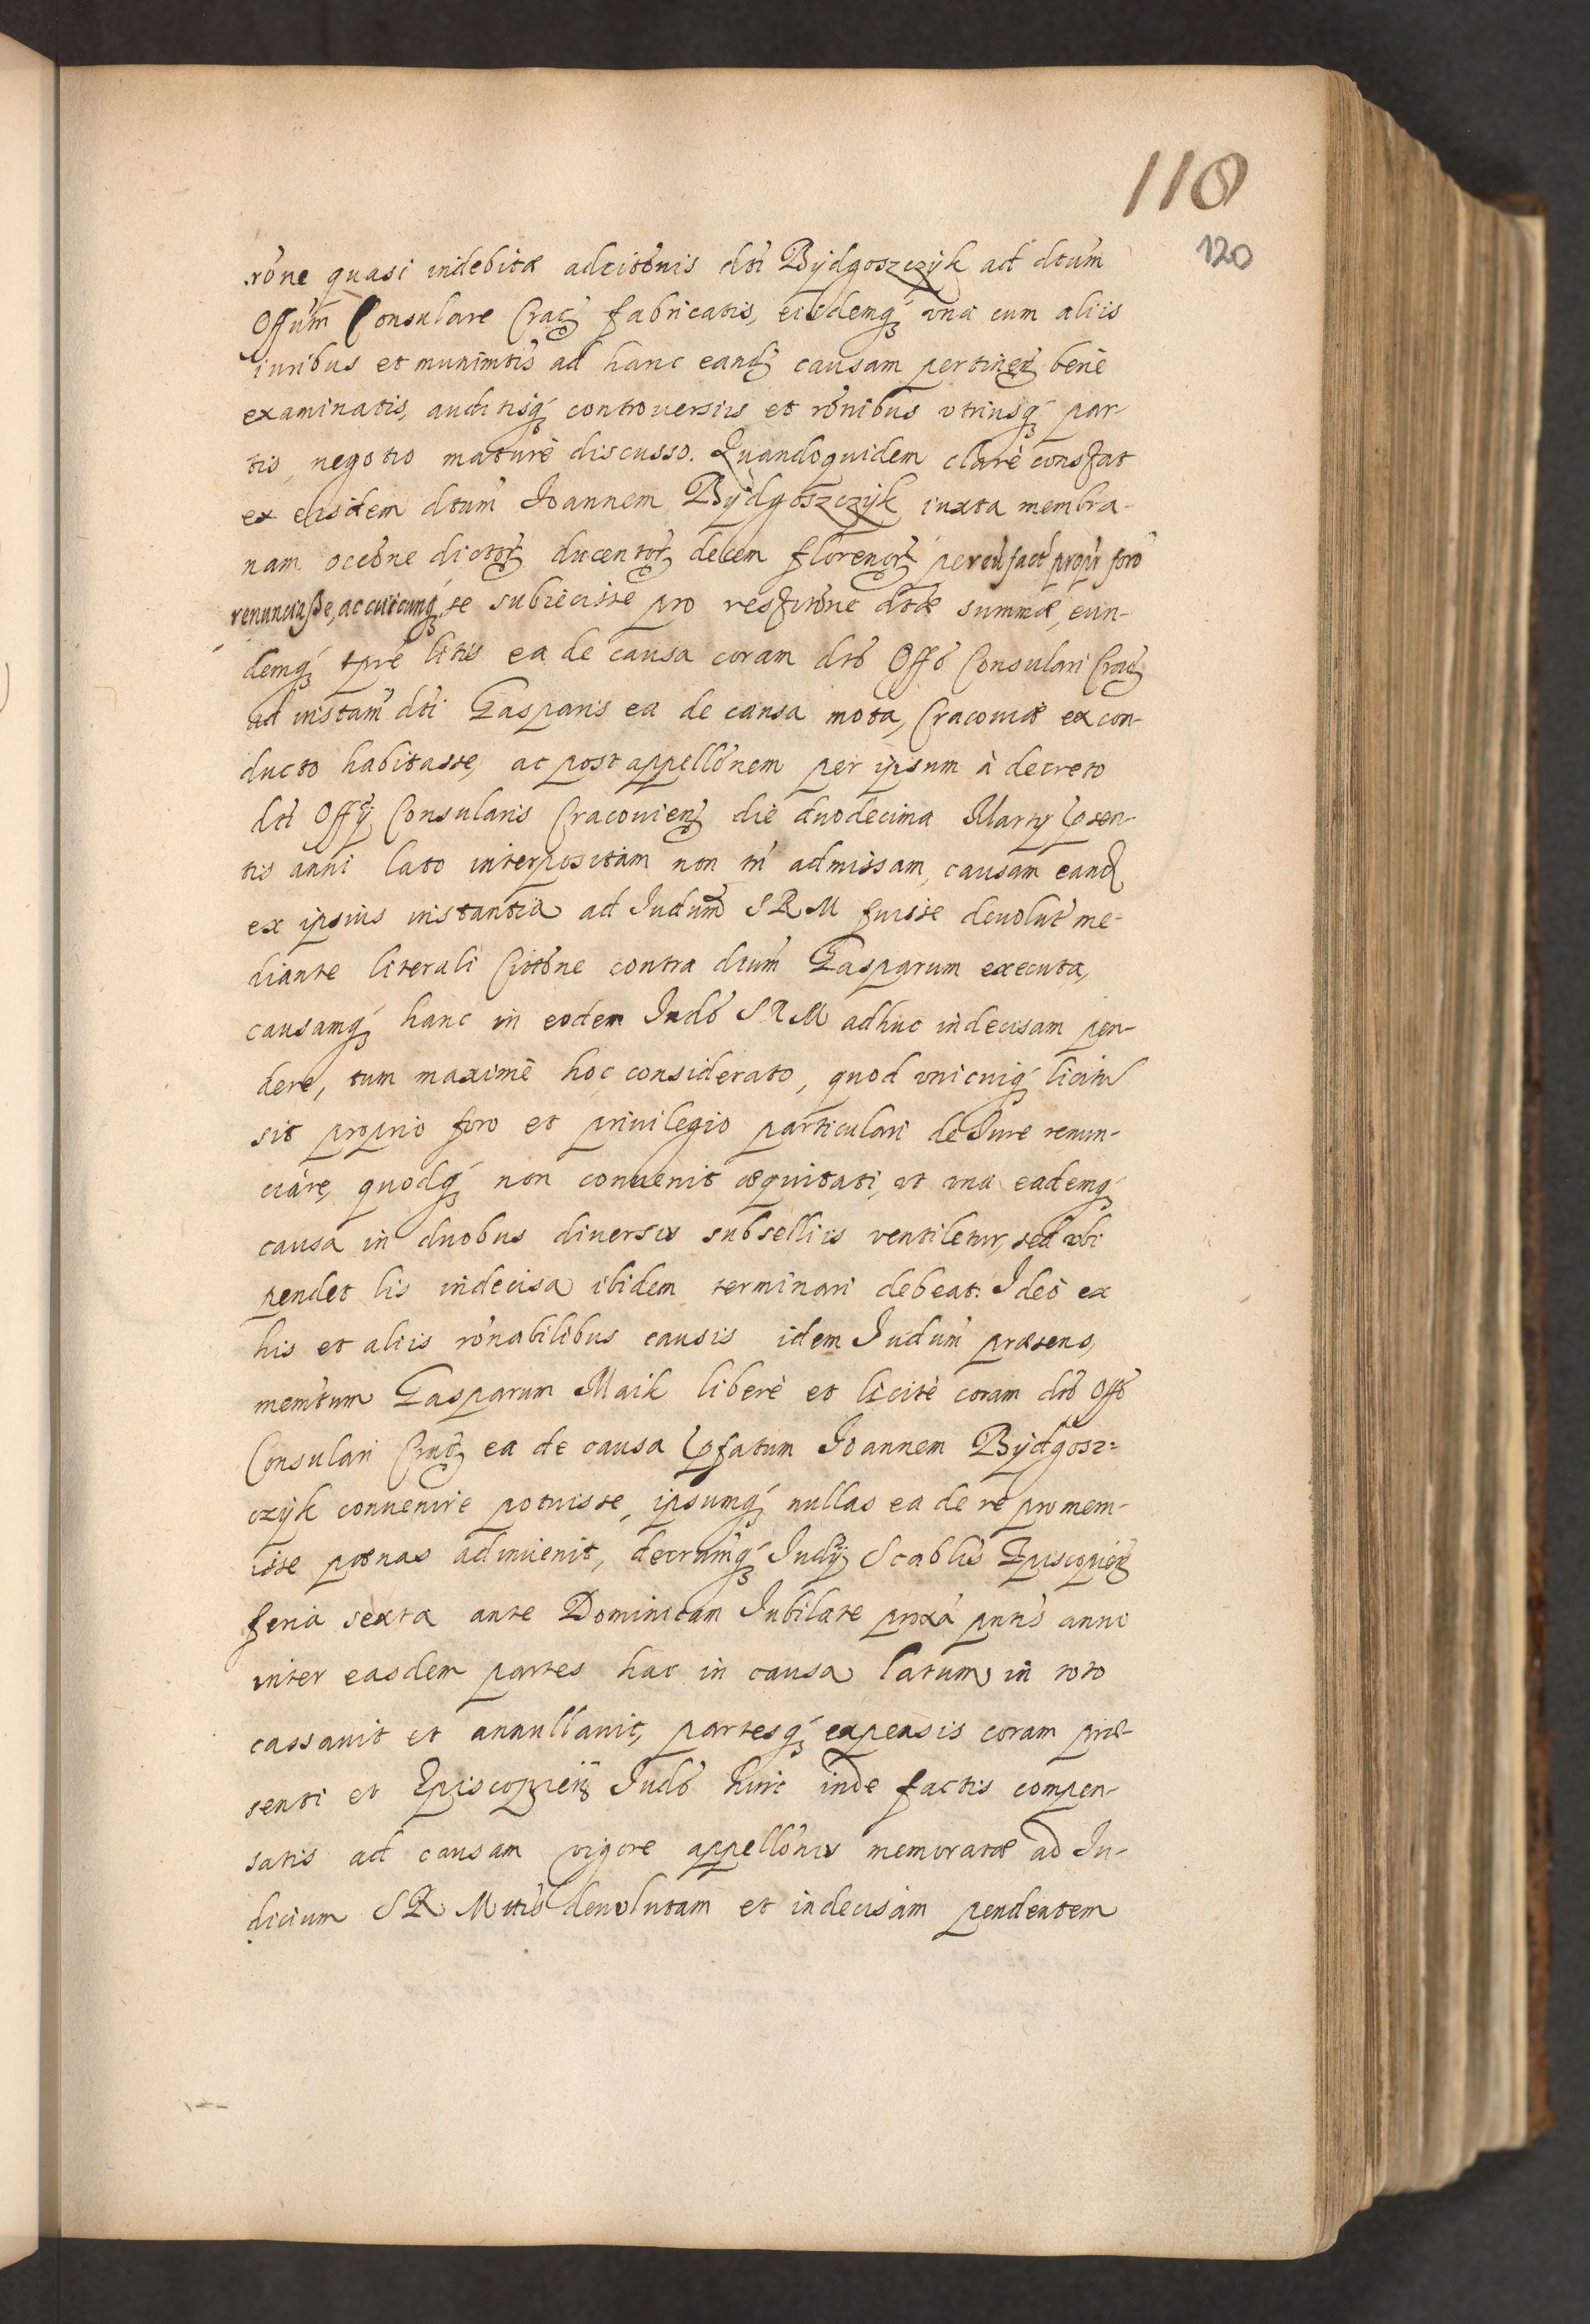 118
120
rone quasi indebitæ adcitonis dti Bydgoszczyk ad dtum
Offum Consulare Crac fabricatis, eisdemq una cum aliis
iuribus et munimtis ad hanc eand causam pertinen bene
examinatis, auditisq controuersiis et ronibus vtriusq par-
tis, negotio mature discusso. Quandoquidem clarè constat
ex eisdem dtum Ioannem Bydgoszczyk iuxta membra-
nam occone dictor ducentor decem florenor per eu fact propr foro
renunciasse, ac cuicunq se subiecisse pro restitone dtæ summæ, eun-
demq tpre litis ea de causa coram dto Offo Consulari Crac
ad instam dti Gasparis ea de causa mota, Cracouiæ ex con-
ducto habitasse, ac post appellonem per ipsum à decreto
dti Offy Consularis Cracouien die duodecima Marty psen-
tis anni lato interpositam non tn admissam, causam eand
ex ipsius instantia ad Iudum S R M fuisse deuolut me-
diante literali Citone contra dtum Gasparum executa,
causamq hanc in eodem Iudo S R M adhuc indecisam pen-
dere, tum maximè hoc considerato, quod vnicuiq licitu
sit proprio foro et priuilegio particulari de Iure renun-
ciare, quodq non conuenit æquitati, vt vna eademq
causa in duobus diuersis subselliis ventiletur, sed vbi
pendet lis indecisa ibidem terminari debeat: Ideò ex
his et aliis ronabilibus causis idem Iudum præsens,
memtum Gasparum Maik liberè et licitè coram dto Offo
Consulari Crac ea de causa pfatum Ioannem Bydgosz=
czyk conuenire potuisse, ipsumq nullas ea de re promem-
isse pœnas adinuenit, decrumq Iudy Scablis Episcopien
feria sexta ante Dominicam Iubilate proxa pntis anni
inter easdem partes hac in causa latum in toto
cassauit et annullauit, partesq expensis coram præ-
senti et Episcopien Iudo hinc inde factis compen-
satis ad causam vigore appellonis memoratæ ad Iu-
dicium S R Mttis deuolutam et indecisam pendentem